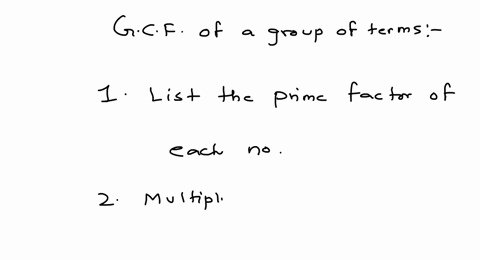 G.C.F. of a group of terms:-
1. List the prime factor of
each no.
2. Multipl